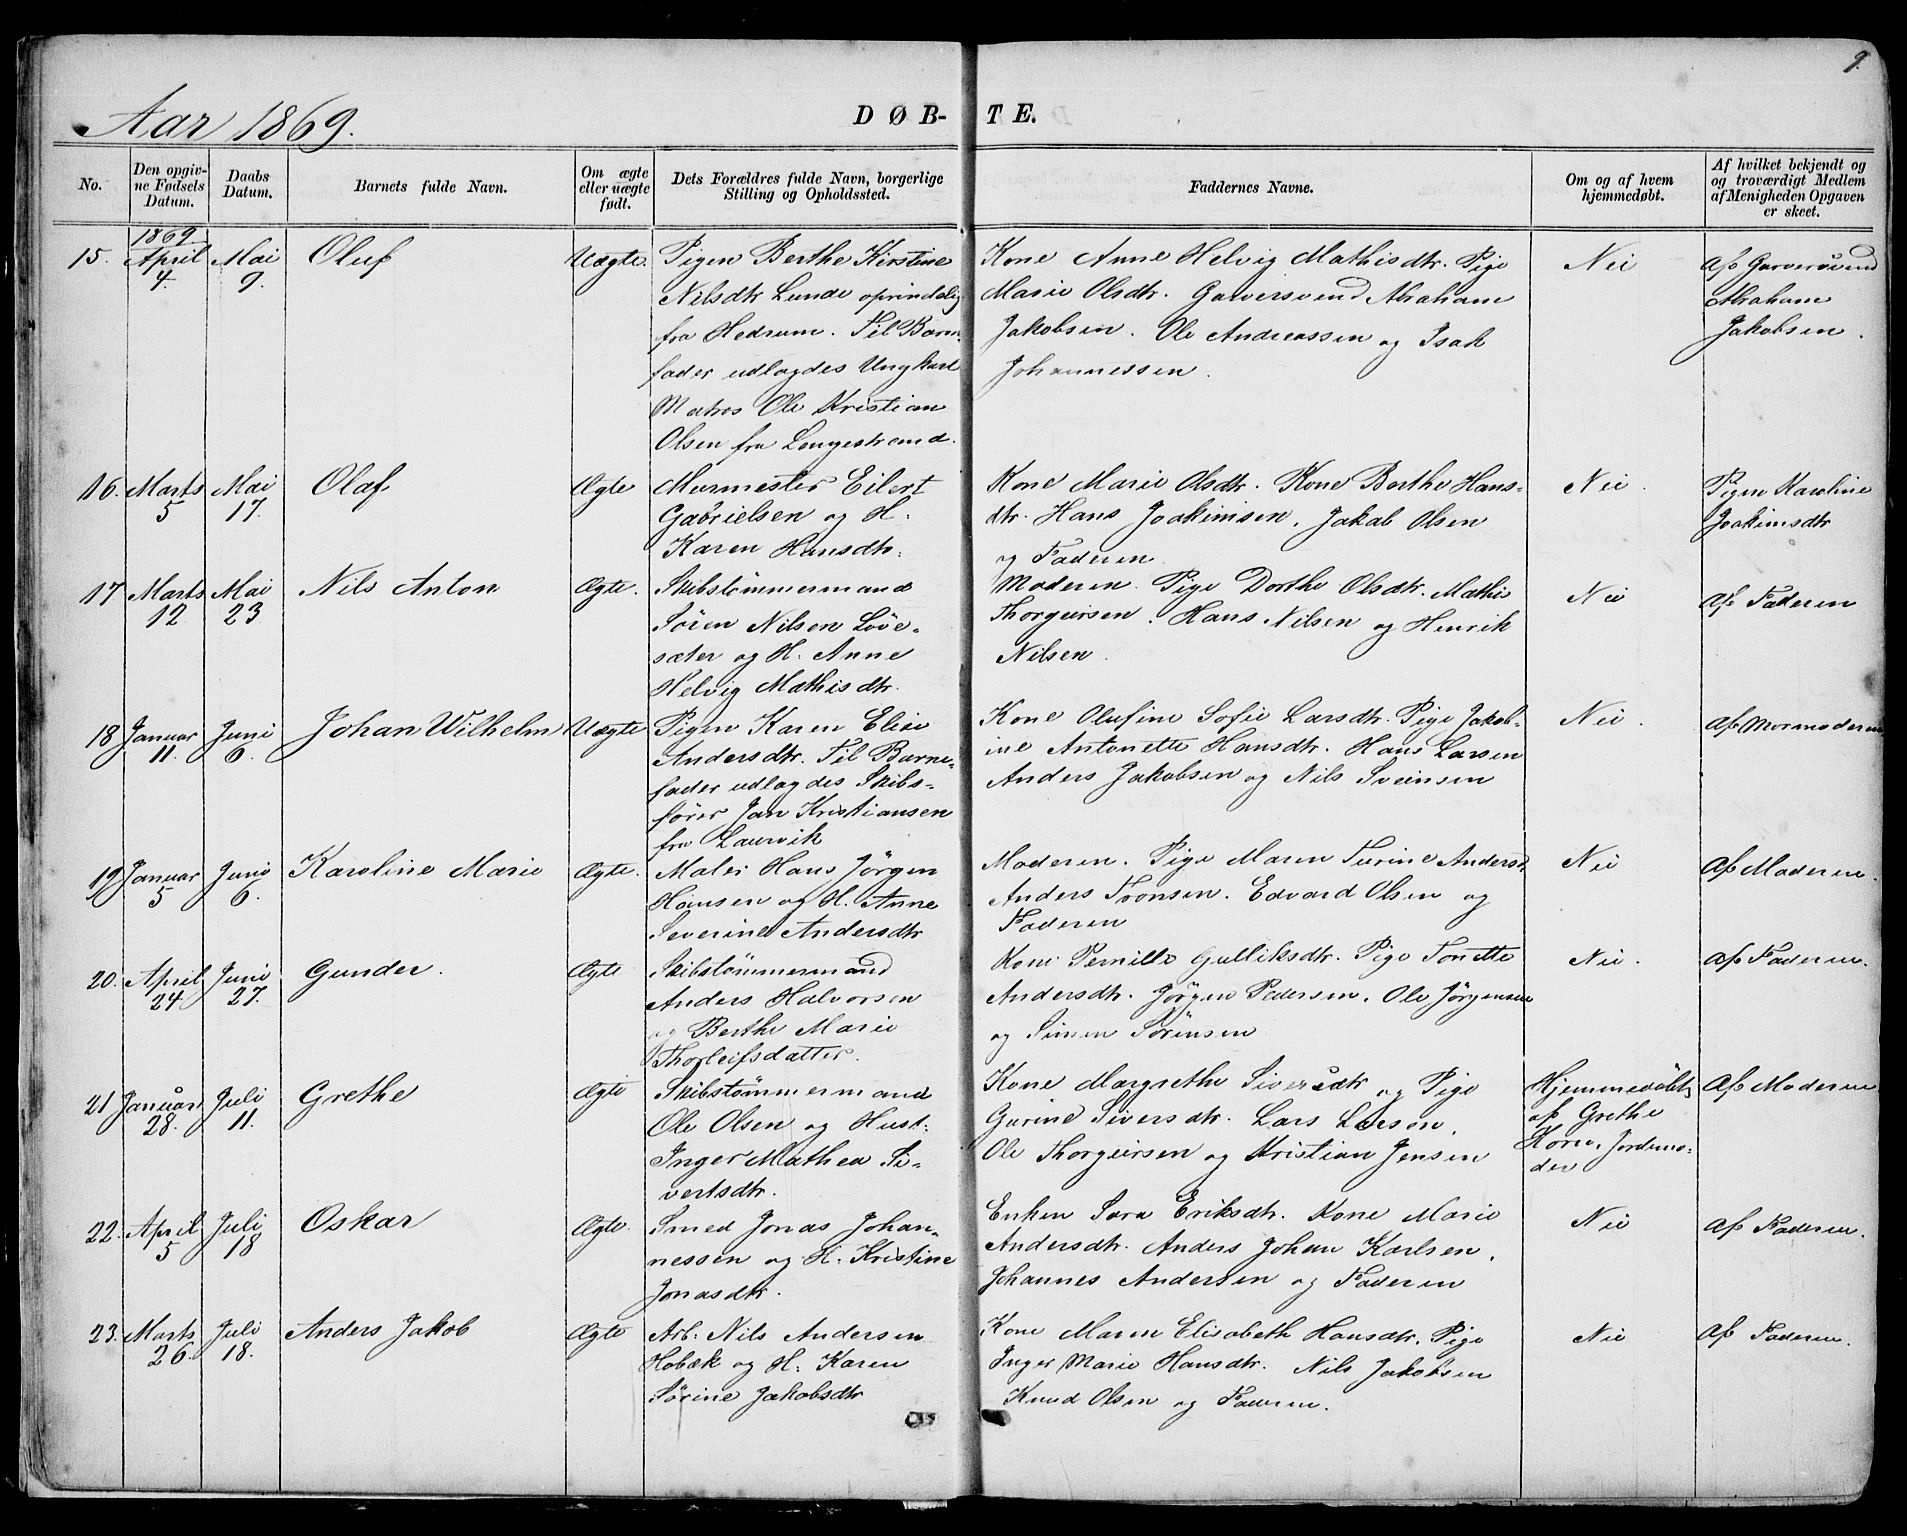 9.
Aar 1869.
DØB-TE.
No.
Den opgiv-
ne Fødsels
Datum.
Daabs
Datum.
Barnets fulde Navn.
Om ægte
eller uægte
født.
Dets Forældres fulde Navn, borgerlige
Stilling og Opholdssted.
Faddernes Navne.
Om og af hvem
hjemmedøbt.
Af hvilket bekjendt og
og troværdigt Medlem
af Menigheden Opgaven
er skeet.
15.
1869
April
4.
Mai
9.
Oluf
Uægte.
Pigen Berthe Kirstine
Nilsdtr Lunde oprindelig
fra Hedrum. Til Barn-
fader udlagdes Ungkarl
Matros Ole Kristian
Olsen fra Langestrand.
Kone Anne Helvig Mathisdtr. Pige
Marie Olsdtr. Garversvend Abraham
Jakobsen. Ole Andreassen og Isak
Johannessen.
Nei
Af Garversvend
Abraham
Jakobsen.
16.
Marts
5
Mai
17.
Olaf
Ægte
Murmester Eilert
Gabrielsen og H.
Karen Hansdtr.
Kone Marie Olsdtr. Kone Berthe Hans-
dtr. Hans Joakimsen, Jakob Olsen
og Faderen
Nei.
Pigen Karoline
Joakimsdtr
17
Marts
12
Mai
23
Nils Anton
Ægte.
Skibstømmermand
Søren Nilsen Løve-
sæter og H. Anne
Helvig Mathisdtr.
Moderen. Pige Dorthe Olsdtr. Mathis
Thorgersen. Hans Nilsen og Henrik
Nilsen.
Nei
Af Faderen
18
Januar
11.
Juni
6.
Johan Wilhelm
Uægte
Pigen Karen Elise
Andersdtr. Til Barne-
fader udlagdes Skibs-
fører Jan Kristiansen
fra Laurvik
Kone Olufine Sofie Larsdtr. Pige Jakob-
ine Antonette Hansdtr. Hans Larsen
Anders Jakobsen og Nils Sveinsen
Nei.
Af Mormoderen
19
Januar
5
Juni
6.
Karoline Marie
Ægte.
Maler Hans Jörgen
Hansen og H. Anne
Severine Andersdtr
Moderen. Pige Maren Turine Andersd
Anders Tronsen. Edvard Olsen og
Faderen
Nei
Af Moderen.
20.
April
24
Juni
27.
Gunder.
Ægte
Skibstömmermand
Anders Halvorsen
og Berthe Marie
Thorleifsdatter.
Kone Pernille Gulliksdtr. Pige Tonette
Andersdtr. Jörgen Pedersen. Ole Jörgensen
og Simen Sörensen
Nei.
Af Faderen.
21
Januar
28.
Juli
11.
Grethe
Ægte
Skibstömmermand
Ole Olsen og Hust.
Inger Mathea Si-
vertsdtr.
Kone Margrethe Siversdtr og Pige
Gurine Siversdtr. Lars Larsen.
Ole Thorgersen og Kristian Jensen
Hjemmedöbt
af Grethe
Horn, Jordemo-
der
Af Moderen
22.
April
5
Juli
18
Oskar
Ægte.
Smed Jonas Johan-
nessen og H. Kristine
Jonasdtr.
Enken Sara Eriksdtr. Kone Marie
Andersdtr. Anders Johan Karlsen.
Johannes Andersen og Faderen
Nei
Af Faderen.
23.
Marts
26.
Juli
18.
Anders Jakob
Ægte
Arb. Nils Andersen
Hobæk og H. Karen
Sörine Jakobsdtr
Kone Maren Elisabeth Hansdtr. Pige
Inger Marie Hansdtr. Nils Jakobsen
Knud Olsen og Faderen.
Nei
Af Faderen.